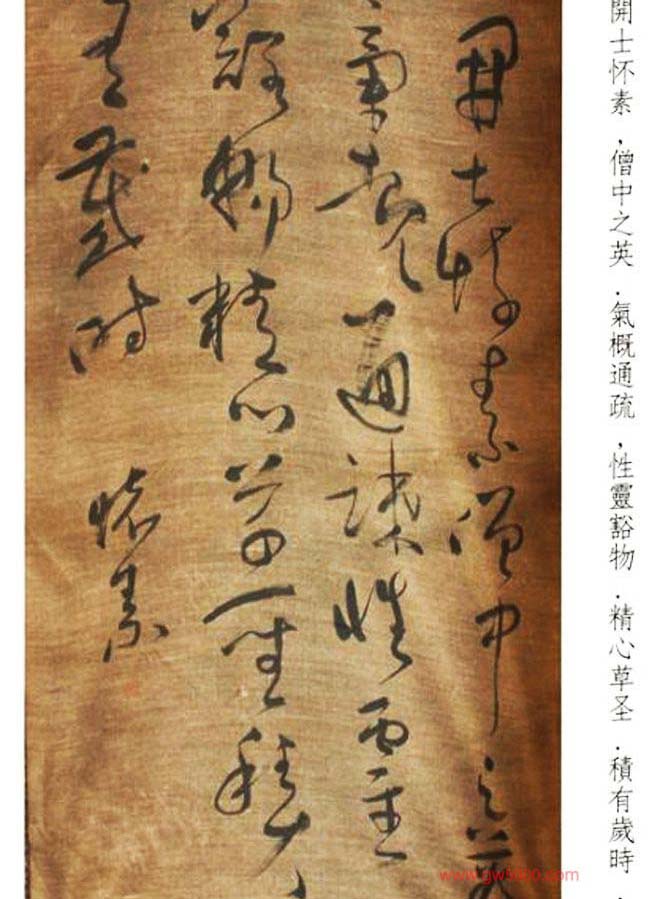 開士怀素，僧中之英．氣概通疏，性靈豁物．精心草圣．積有歲時．
開士懷素僧中之英
氣概通疏性靈
豁物精心草聖積
有歲時
懷素